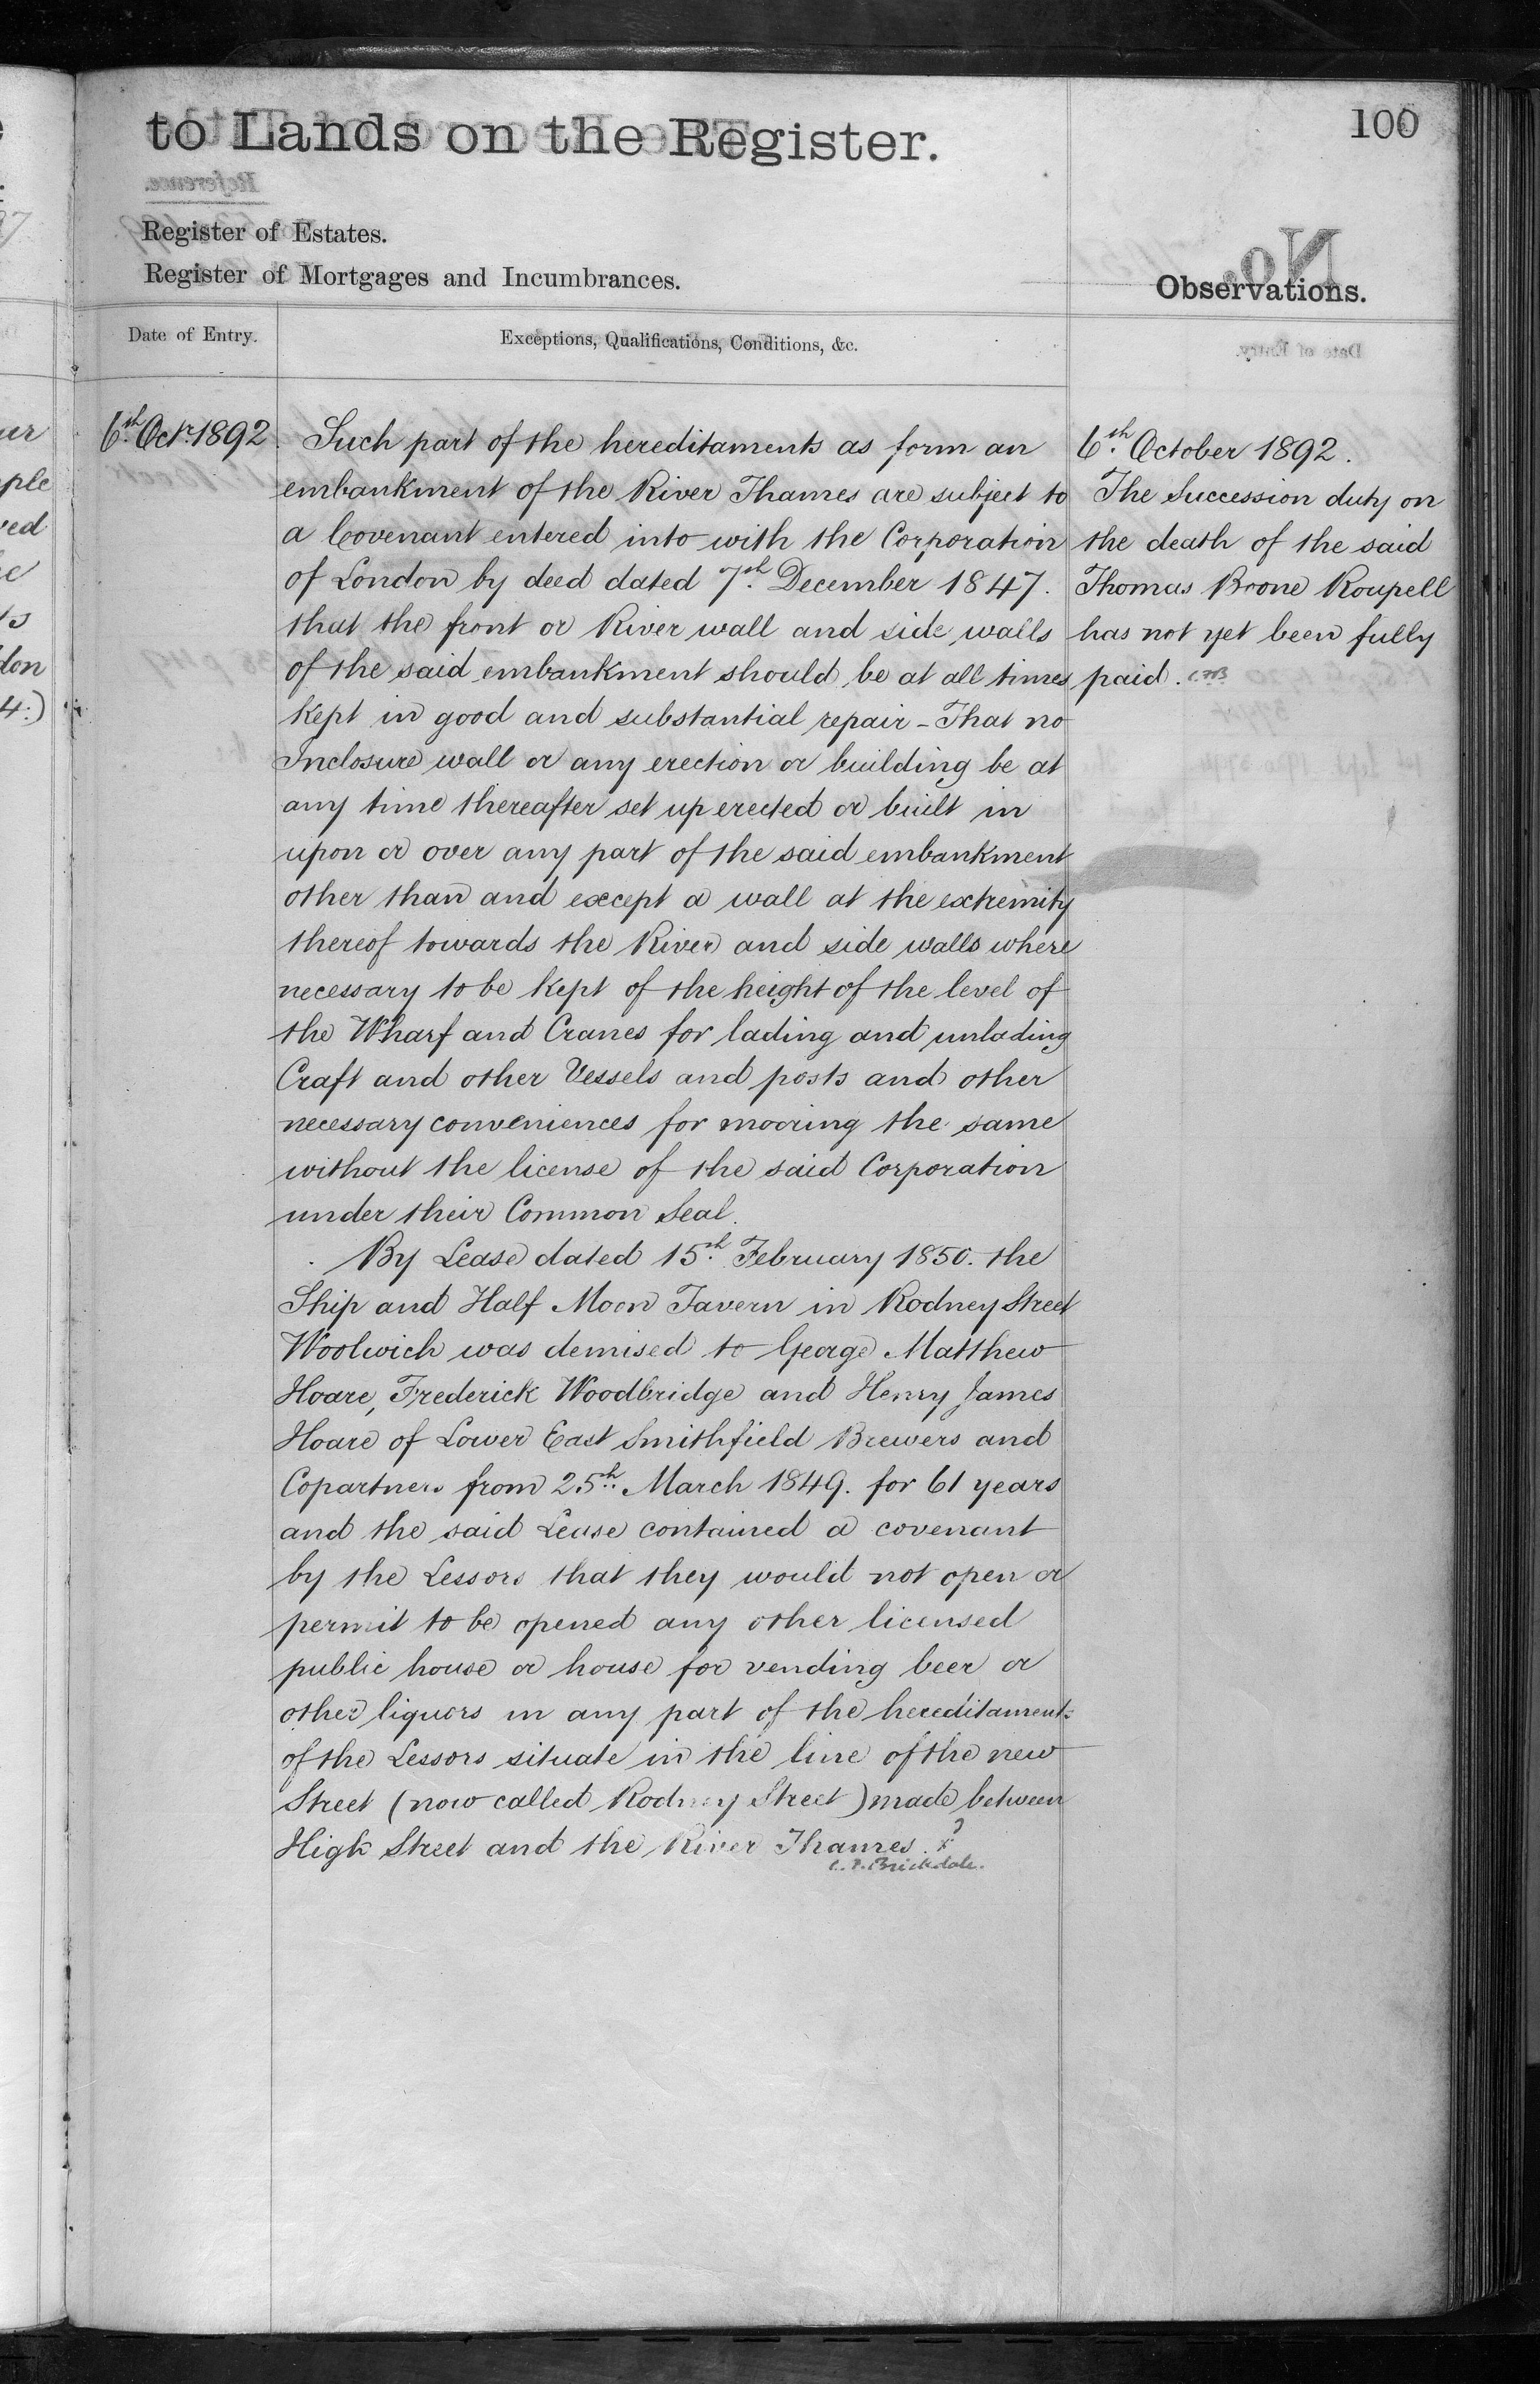 to Lands on the Register.
100
Register of Estates.
Register of Mortgages and Incumbrances.
Observations.
Date of Entry.
Exceptions, Qualifications, Conditions, &c.
6th Octr. 1892
Such part of the hereditaments as form an
embankment of the River Thames are subject to
a Covenant entered into with the Corporation
of London by deed dated 7th December 1847.
that the front or River wall and side walls
of the said embankment should be at all times
kept in good and substantial repair - That no
Inclosure wall or any erection or building be at
any time thereafter set up erected or built in
upon or over any part of the said embankment
other than and except a wall at the extremity
thereof towards the River and side walls where
necessary to be kept of the height of the level of
the Wharf and Cranes for lading and unlading
Craft and other Vessels and posts and other
necessary conveniences for mooring the same
without the license of the said Corporation
under their Common Seal.
By Lease dated 15th February 1850. the
Ship and Half Moon Tavern in Rodney Street
Woolwich was demised to George Matthew
Hoare, Frederick Woodbridge and Henry James
Hoare of Lower East Smithfield Brewers and
Copartners from 25th March 1849. for 61 years
and the said Lease contained a covenant
by the Lessors that they would not open or
permit to be opened any other licensed
public house or house for vending beer or
other liquors in any part of the hereditaments
of the Lessors situate in the line of the new
Street (now called Rodney Street) made between
High Street and the River Thames.
C. F. Brickdale.
6th October 1892.
The Succession duty on
the death of the said
Thomas Boone Roupell
has not yet been fully
paid.